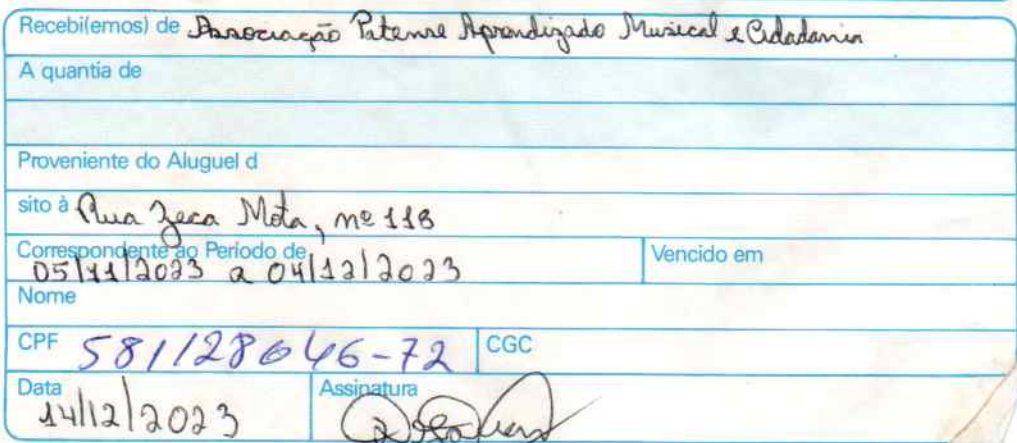 Recebi(emos) de Associação Patense Aprendizado Musical e Cidadania
A quantia de
Proveniente do Aluguel d
sito à Rua Zeca Mota, nº 118
Correspondente ao Período de Vencido em
05/11/2023 a 04/12/2023
Nome
CPF 581128646-72 CGC
Data Assinatura
14/12/2023